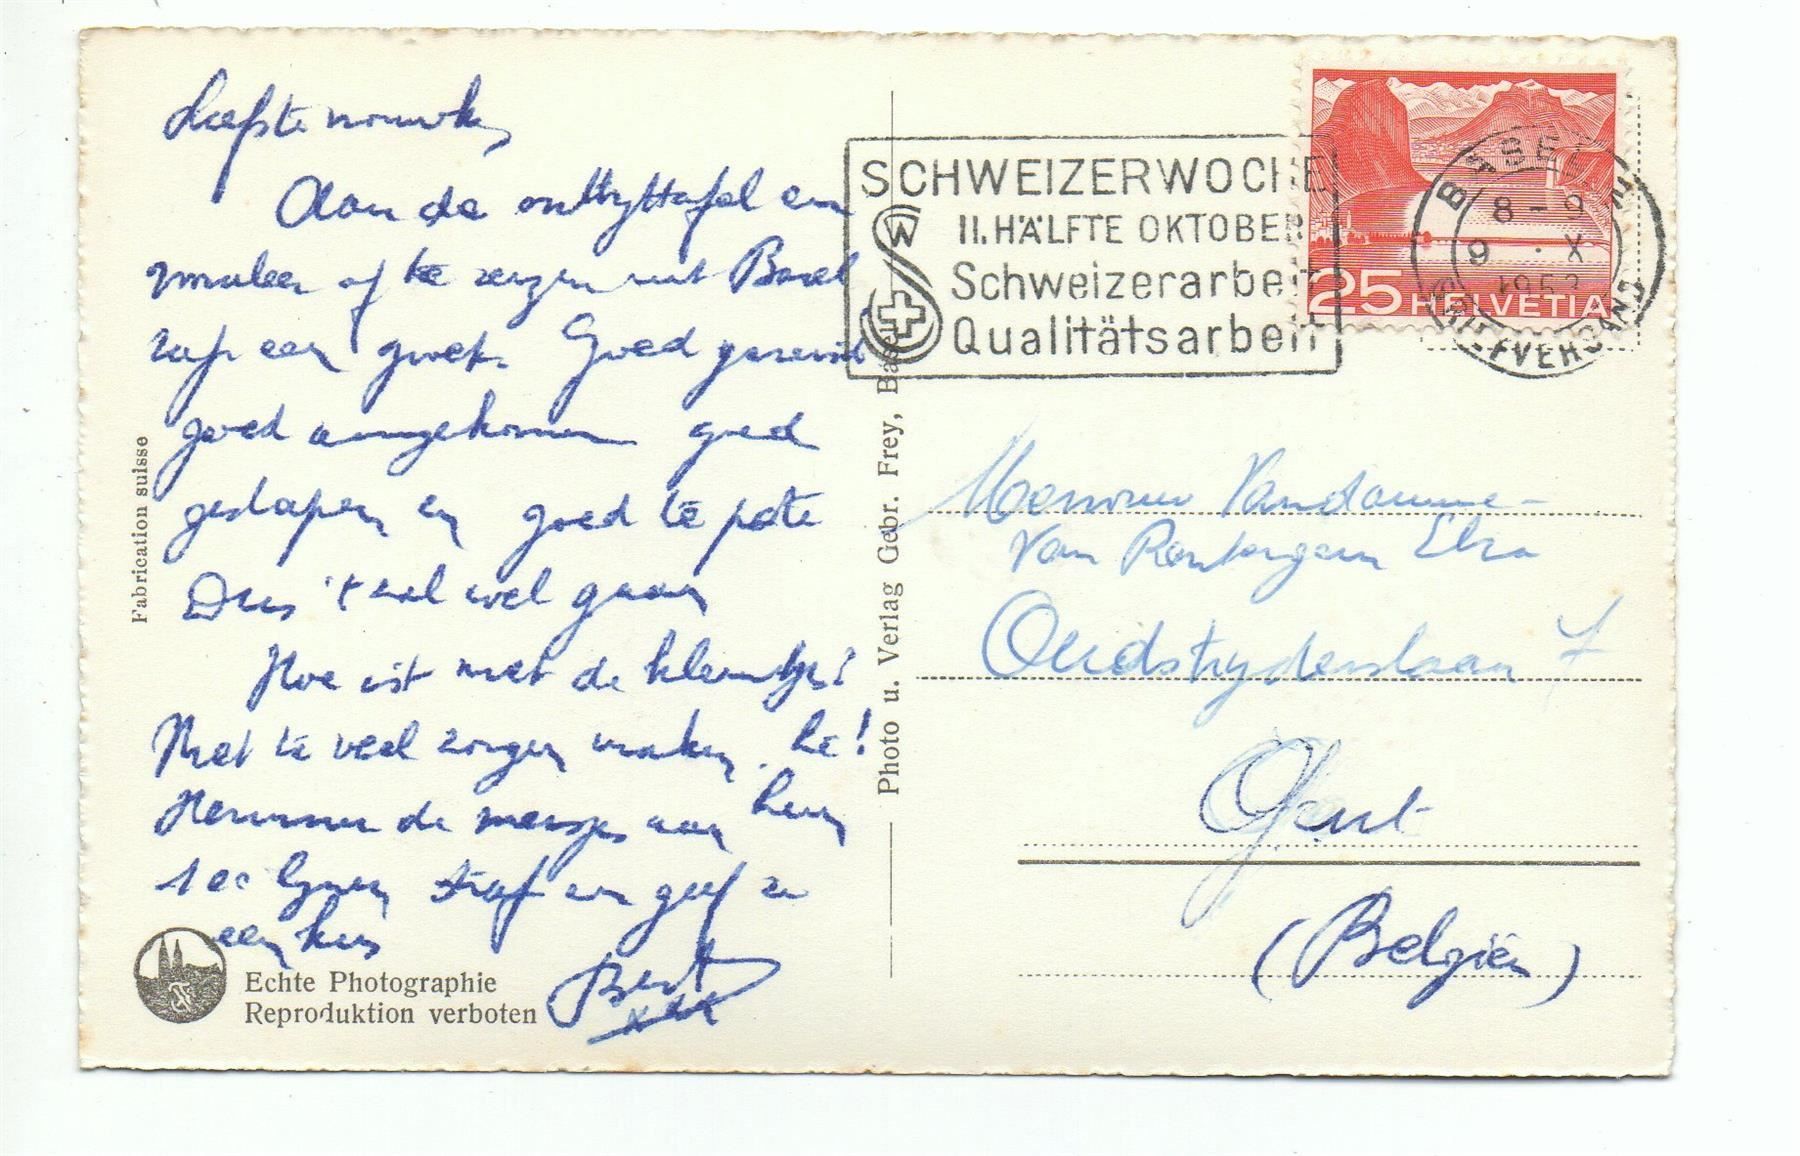 Liefste vrouwke,
Aan de ontbijttafel een
te zenden uit Basel
een groet. Goed gereisd
goed aangekomen goed
geslapen en goed te pote
Dus 't zal wel gaan
Hoe ist met de kleintjes?
Niet te veel zorgen maken, hé!
Herinner de meisjes aan hun
100 lijnen straf en geef ze
een kus
Bert
xxx
Fabrication suisse
Echte Photographie
Reproduktion verboten
Photo u. Verlag Gebr. Frey, Basel
SCHWEIZERWOCHE
II. HÄLFTE OKTOBER
Schweizerarbeit
Qualitätsarbeit
W
25 HELVETIA
BASEL 2
8-9
9.X
BRIEFVERSAND
Mevrouw Vandamme-
Van Elza
Oudstrijderslaan 7
Gent
(Belgiën)